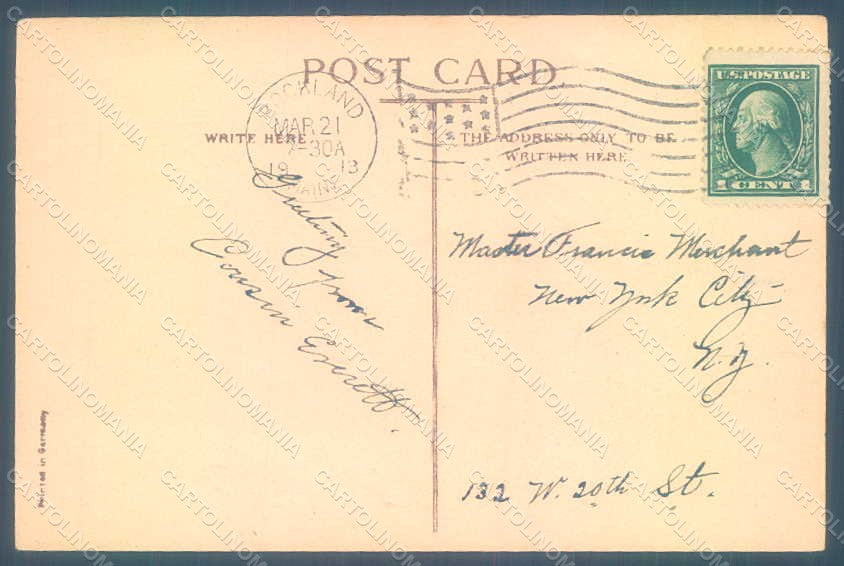 POST CARD
ROCKLAND
MAR 21
-30A
1913
MAINE
U.S. POSTAGE
1 CENT 1
WRITE HERE
THE ADDRESS ONLY TO BE
WRITTEN HERE
Greeting
from
Cousin Everett.
Master Francis Merchant
New York City
N.Y.
132 W. 20th St.
Printed in Germany
CARTOLINOMANIA